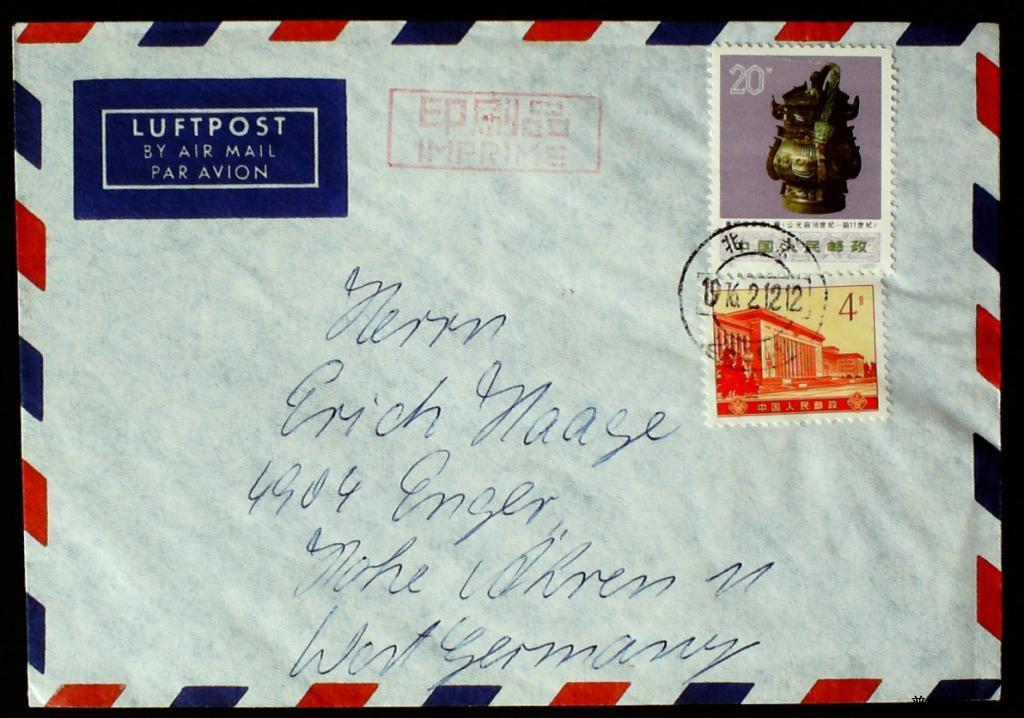 LUFTPOST
BY AIR MAIL
PAR AVION
印刷品
IMPRIMÉ
20分
(公元前16世纪—前11世纪)
中国人民邮政
北京
1976.2.12.12
4分
中国人民邮政
Herrn
Erich Haage
4904 Enger
Hohe Ähren 11
West Germany